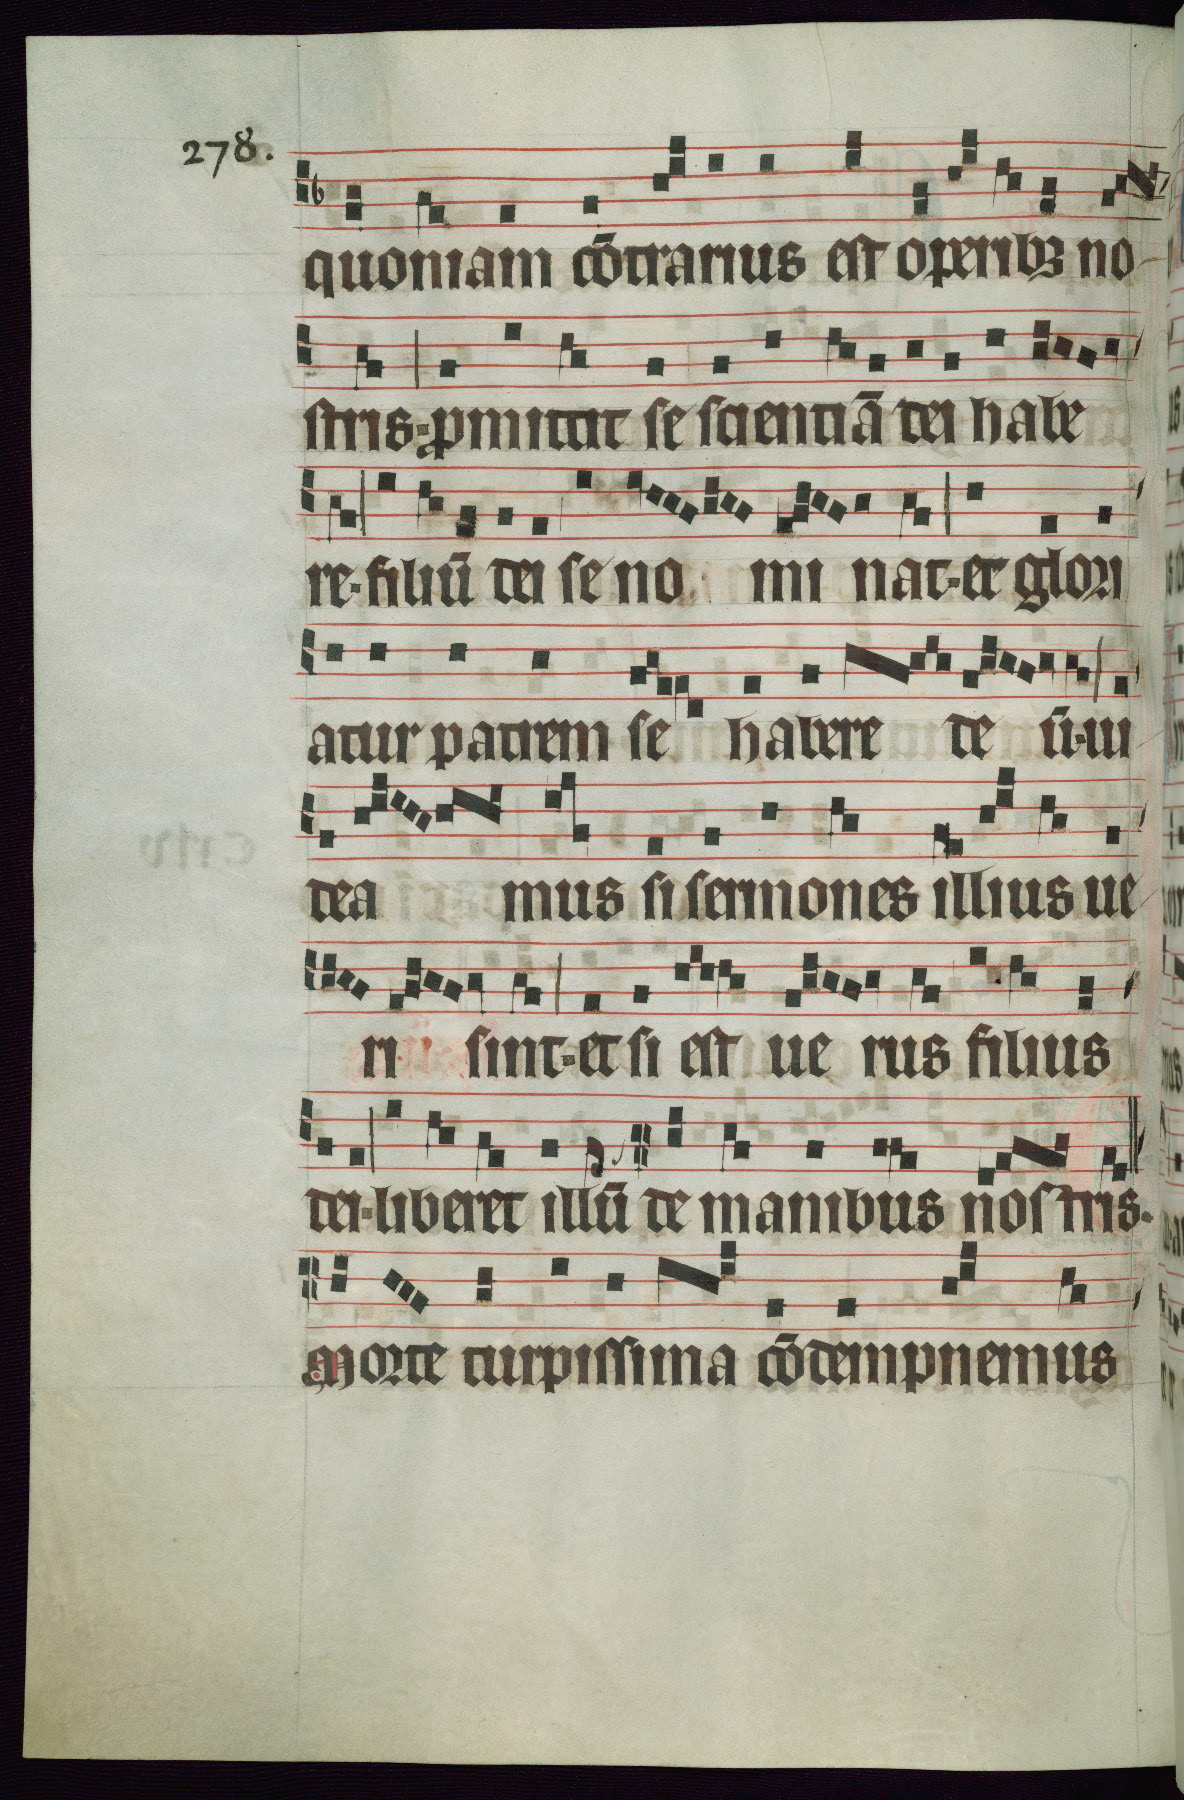 278.
quoniam cōtrarius est operibꝫ no
stris·ꝓmittit se scientiā dei habe
re·filiū dei se no mi nat·et glori
atur patrem se habere deū·ui
dea mus si sermones illius ue
ri sint·et si est ue rus filius
dei·liberet illū de manibus nostris·
Morte turpissima cōdempnemus